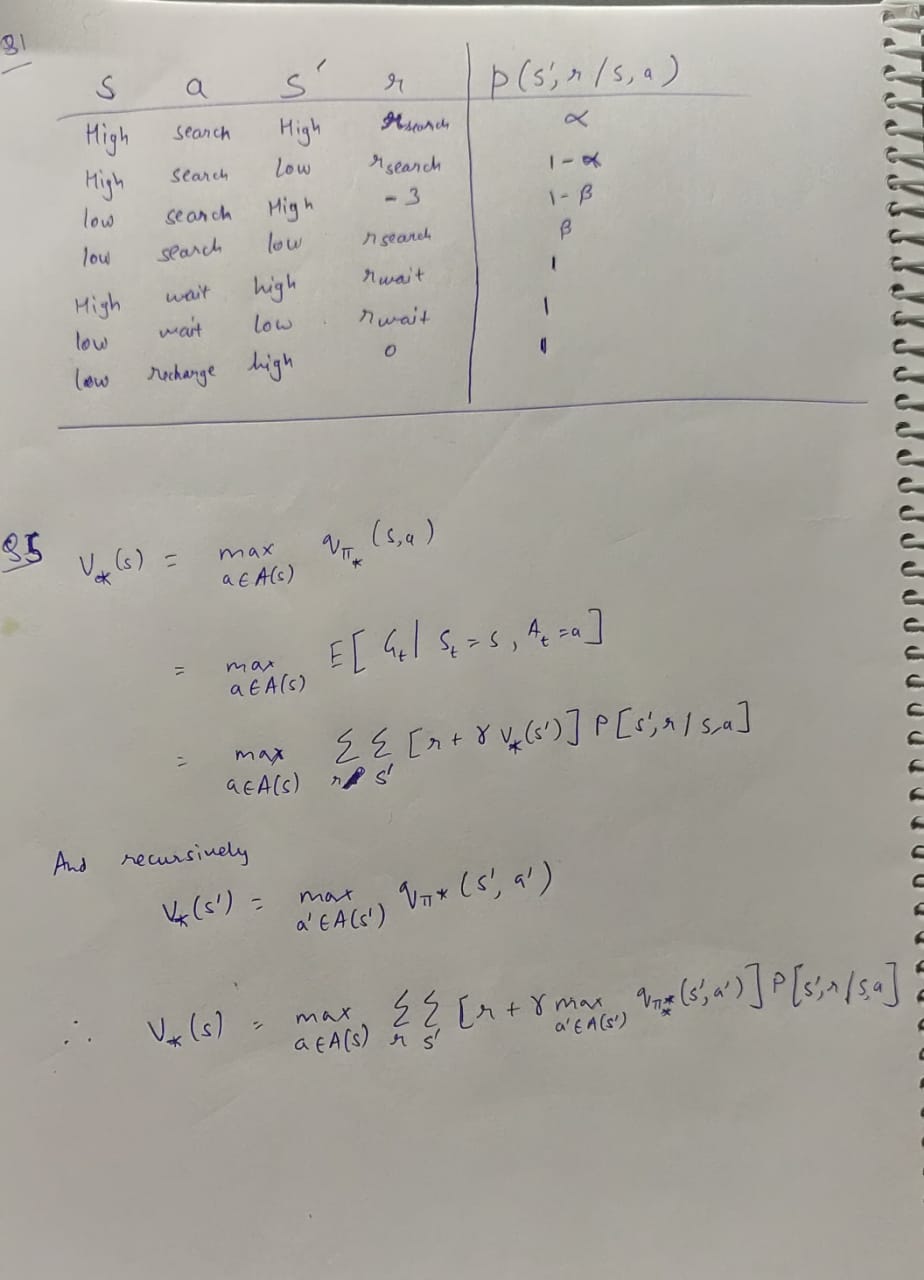 Q1
s a s' r p(s', r/s, a)
High search High rsearch α
High search Low rsearch 1-α
low search High -3 1-β
low search low rsearch β
High wait high rwait 1
low wait low rwait 1
low recharge high 0 1
Q5 V*(s) = max a∈A(s) qπ*(s,a)
= max a∈A(s) E[Gt | St = s, At = a]
= max a∈A(s) Σr Σs' [r + γ V*(s')] P[s', r / s, a]
And recursively
V*(s') = max a'∈A(s') qπ*(s', a')
∴ V*(s) = max a∈A(s) Σr Σs' [r + γ max a'∈A(s') qπ*(s', a')] P[s', r / s, a]